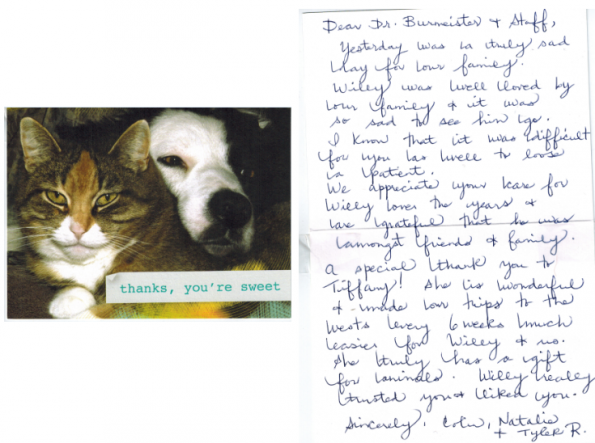 thanks, you're sweet
Dear Dr. Burmeister & Staff,
Yesterday was a truly sad
day for our family.
Willy was well loved by
our family & it was
so sad to see him go.
I know that it was difficult
for you as well to loose
a patient.
We appreciate your care for
Willy over the years &
are grateful that he was
amongst friends & family.
A special thank you to
Tiffany! She is wonderful
& made our trips to the
vets every 6 weeks much
easier for Willy & us.
She truly has a gift
for animals. Willy really
trusted you & liked you.
Sincerely, Colin, Natalie
& Tyler R.